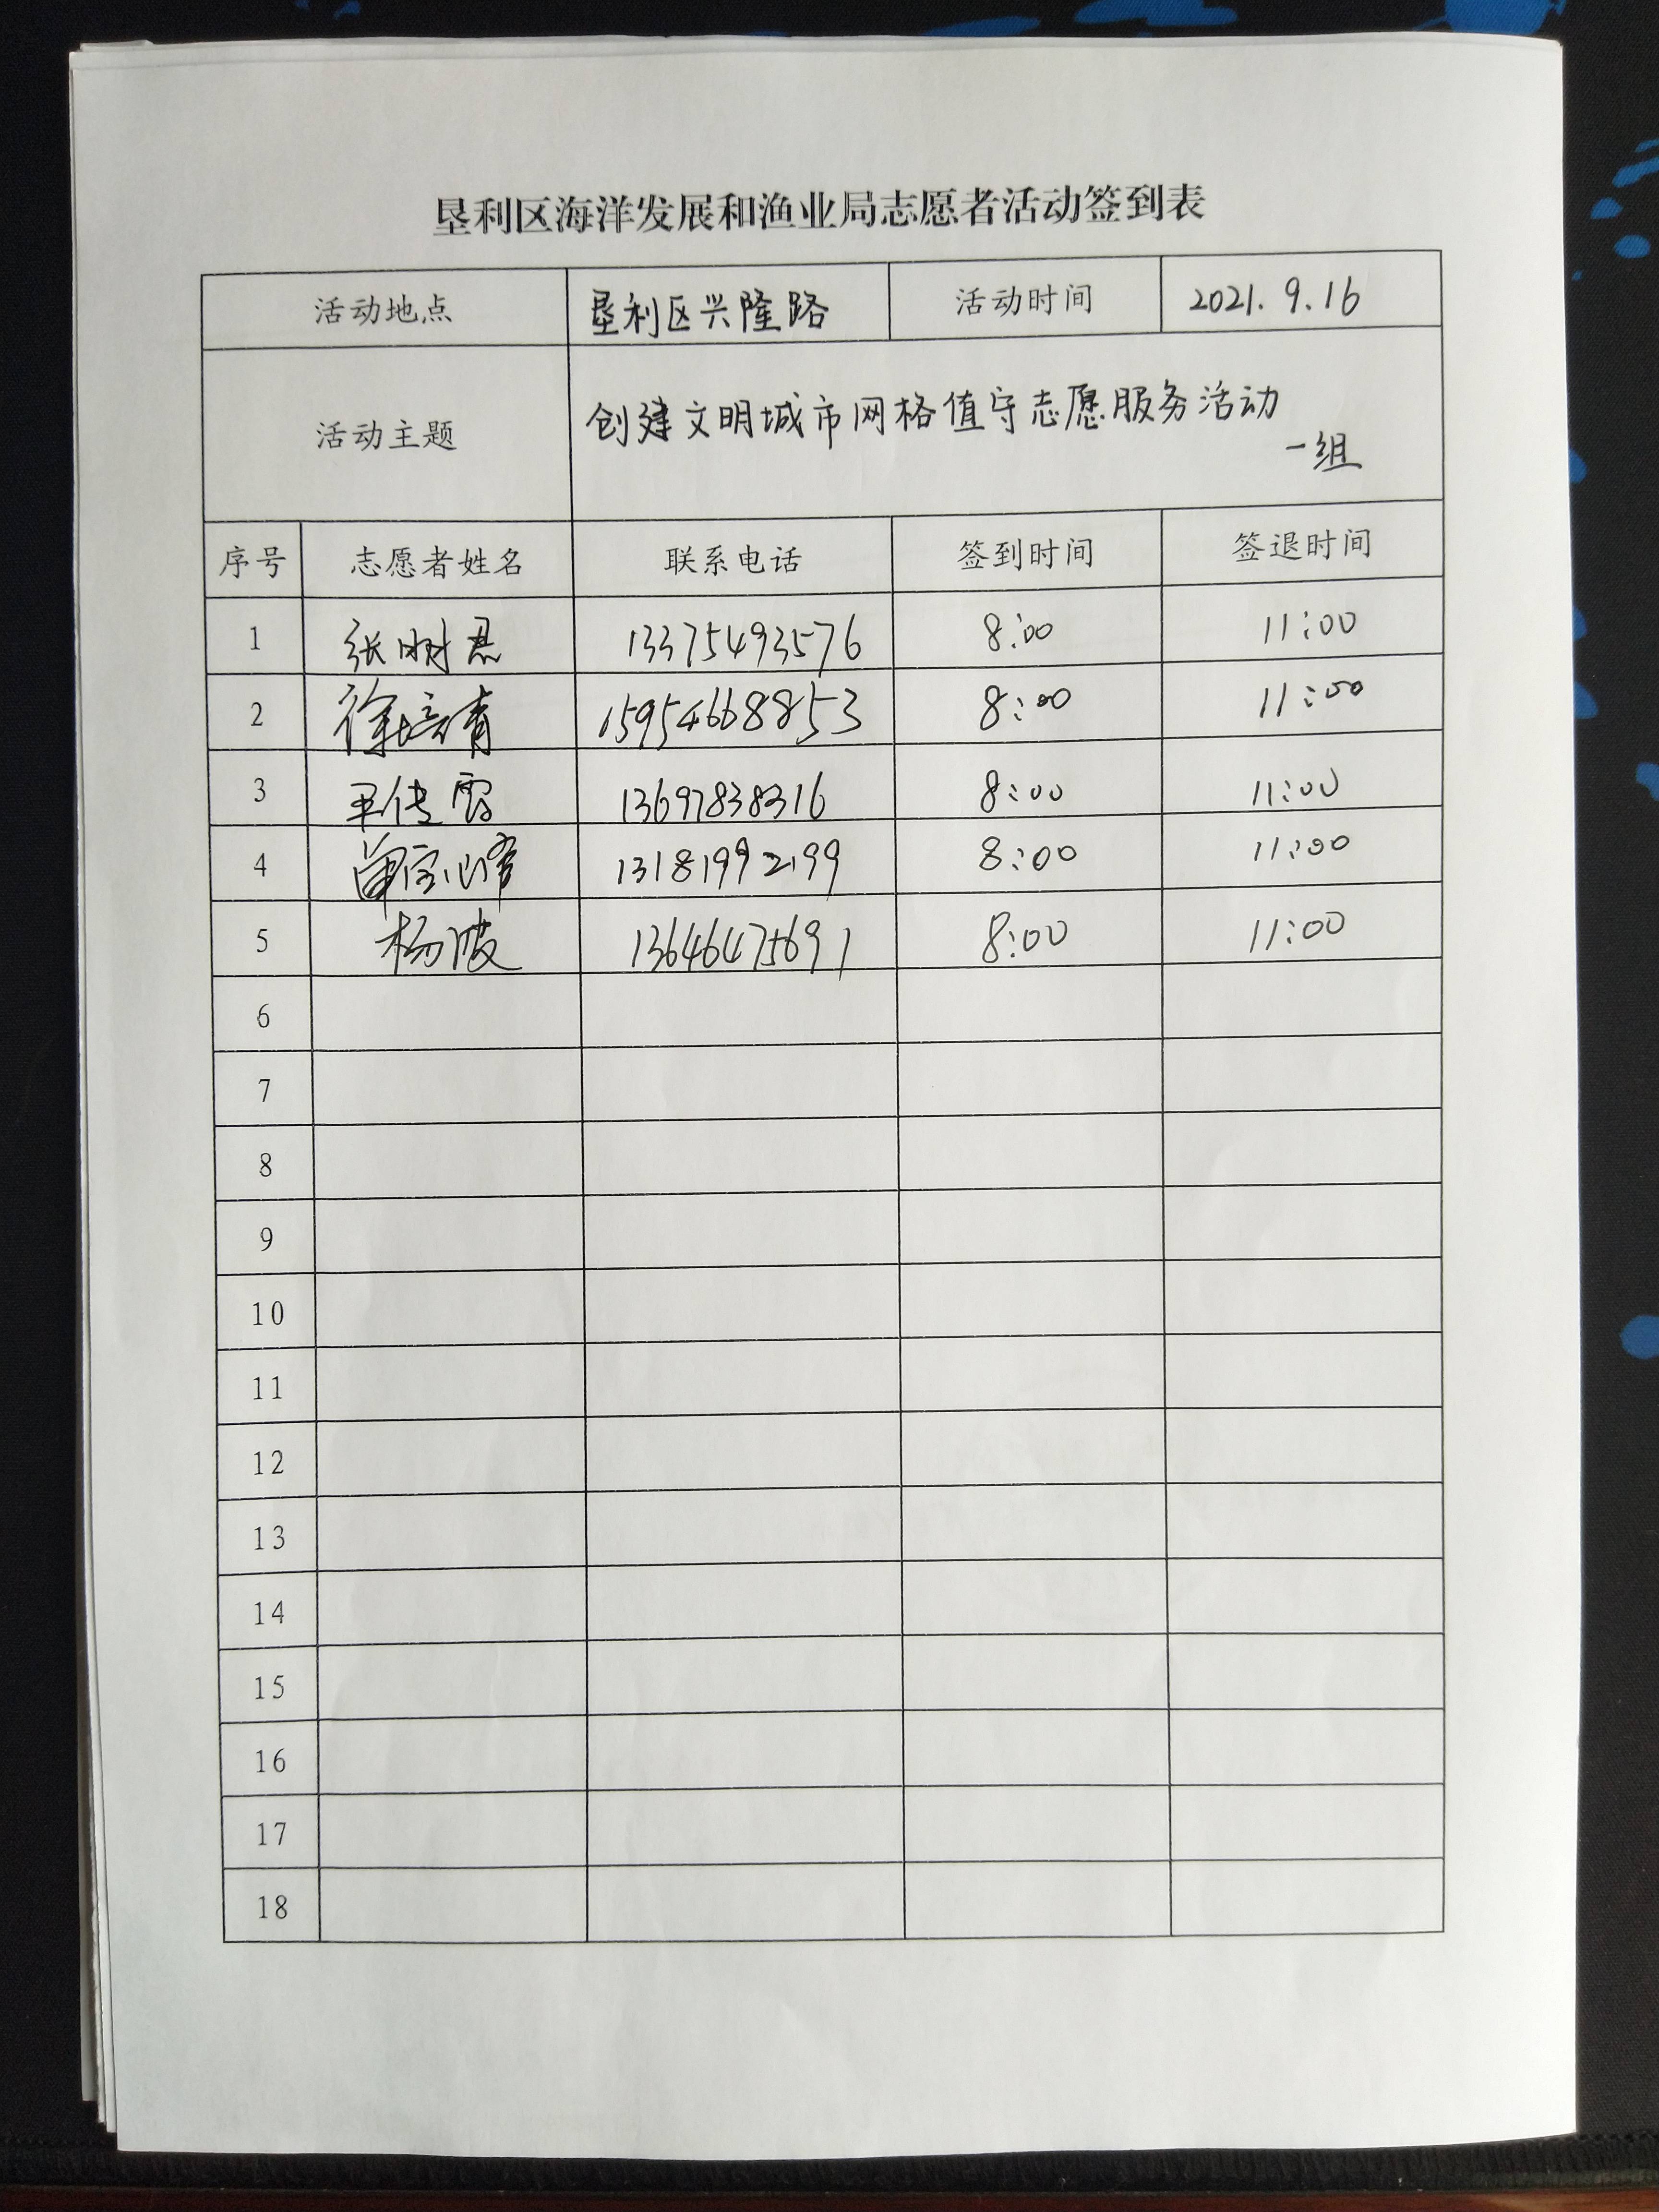 垦利区海洋发展和渔业局志愿者活动签到表
活动地点 垦利区兴隆路 活动时间 2021.9.16
活动主题 创建文明城市网格值守志愿服务活动
一组
序号 志愿者姓名 联系电话 签到时间 签退时间
1 张树忍 13375493576 8:00 11:00
2 徐培青 15954668853 8:00 11:00
3 王传雷 13697838316 8:00 11:00
4 13181992199 8:00 11:00
5 杨波 13646475691 8:00 11:00
6
7
8
9
10
11
12
13
14
15
16
17
18